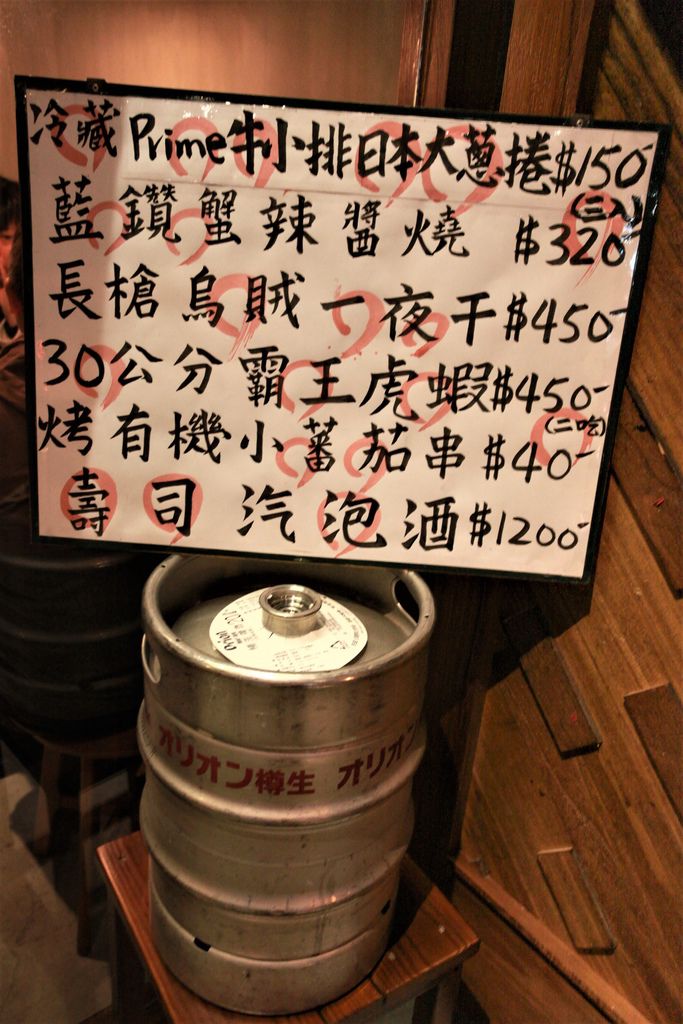 冷藏Prime牛小排日本大蔥捲$150
(三入)
藍鑽蟹辣醬燒 $320
長槍烏賊一夜干$450
30公分霸王虎蝦$450
(二吃)
烤有機小蕃茄串$40
壽司汽泡酒$1200
オリオン樽生 オリオン